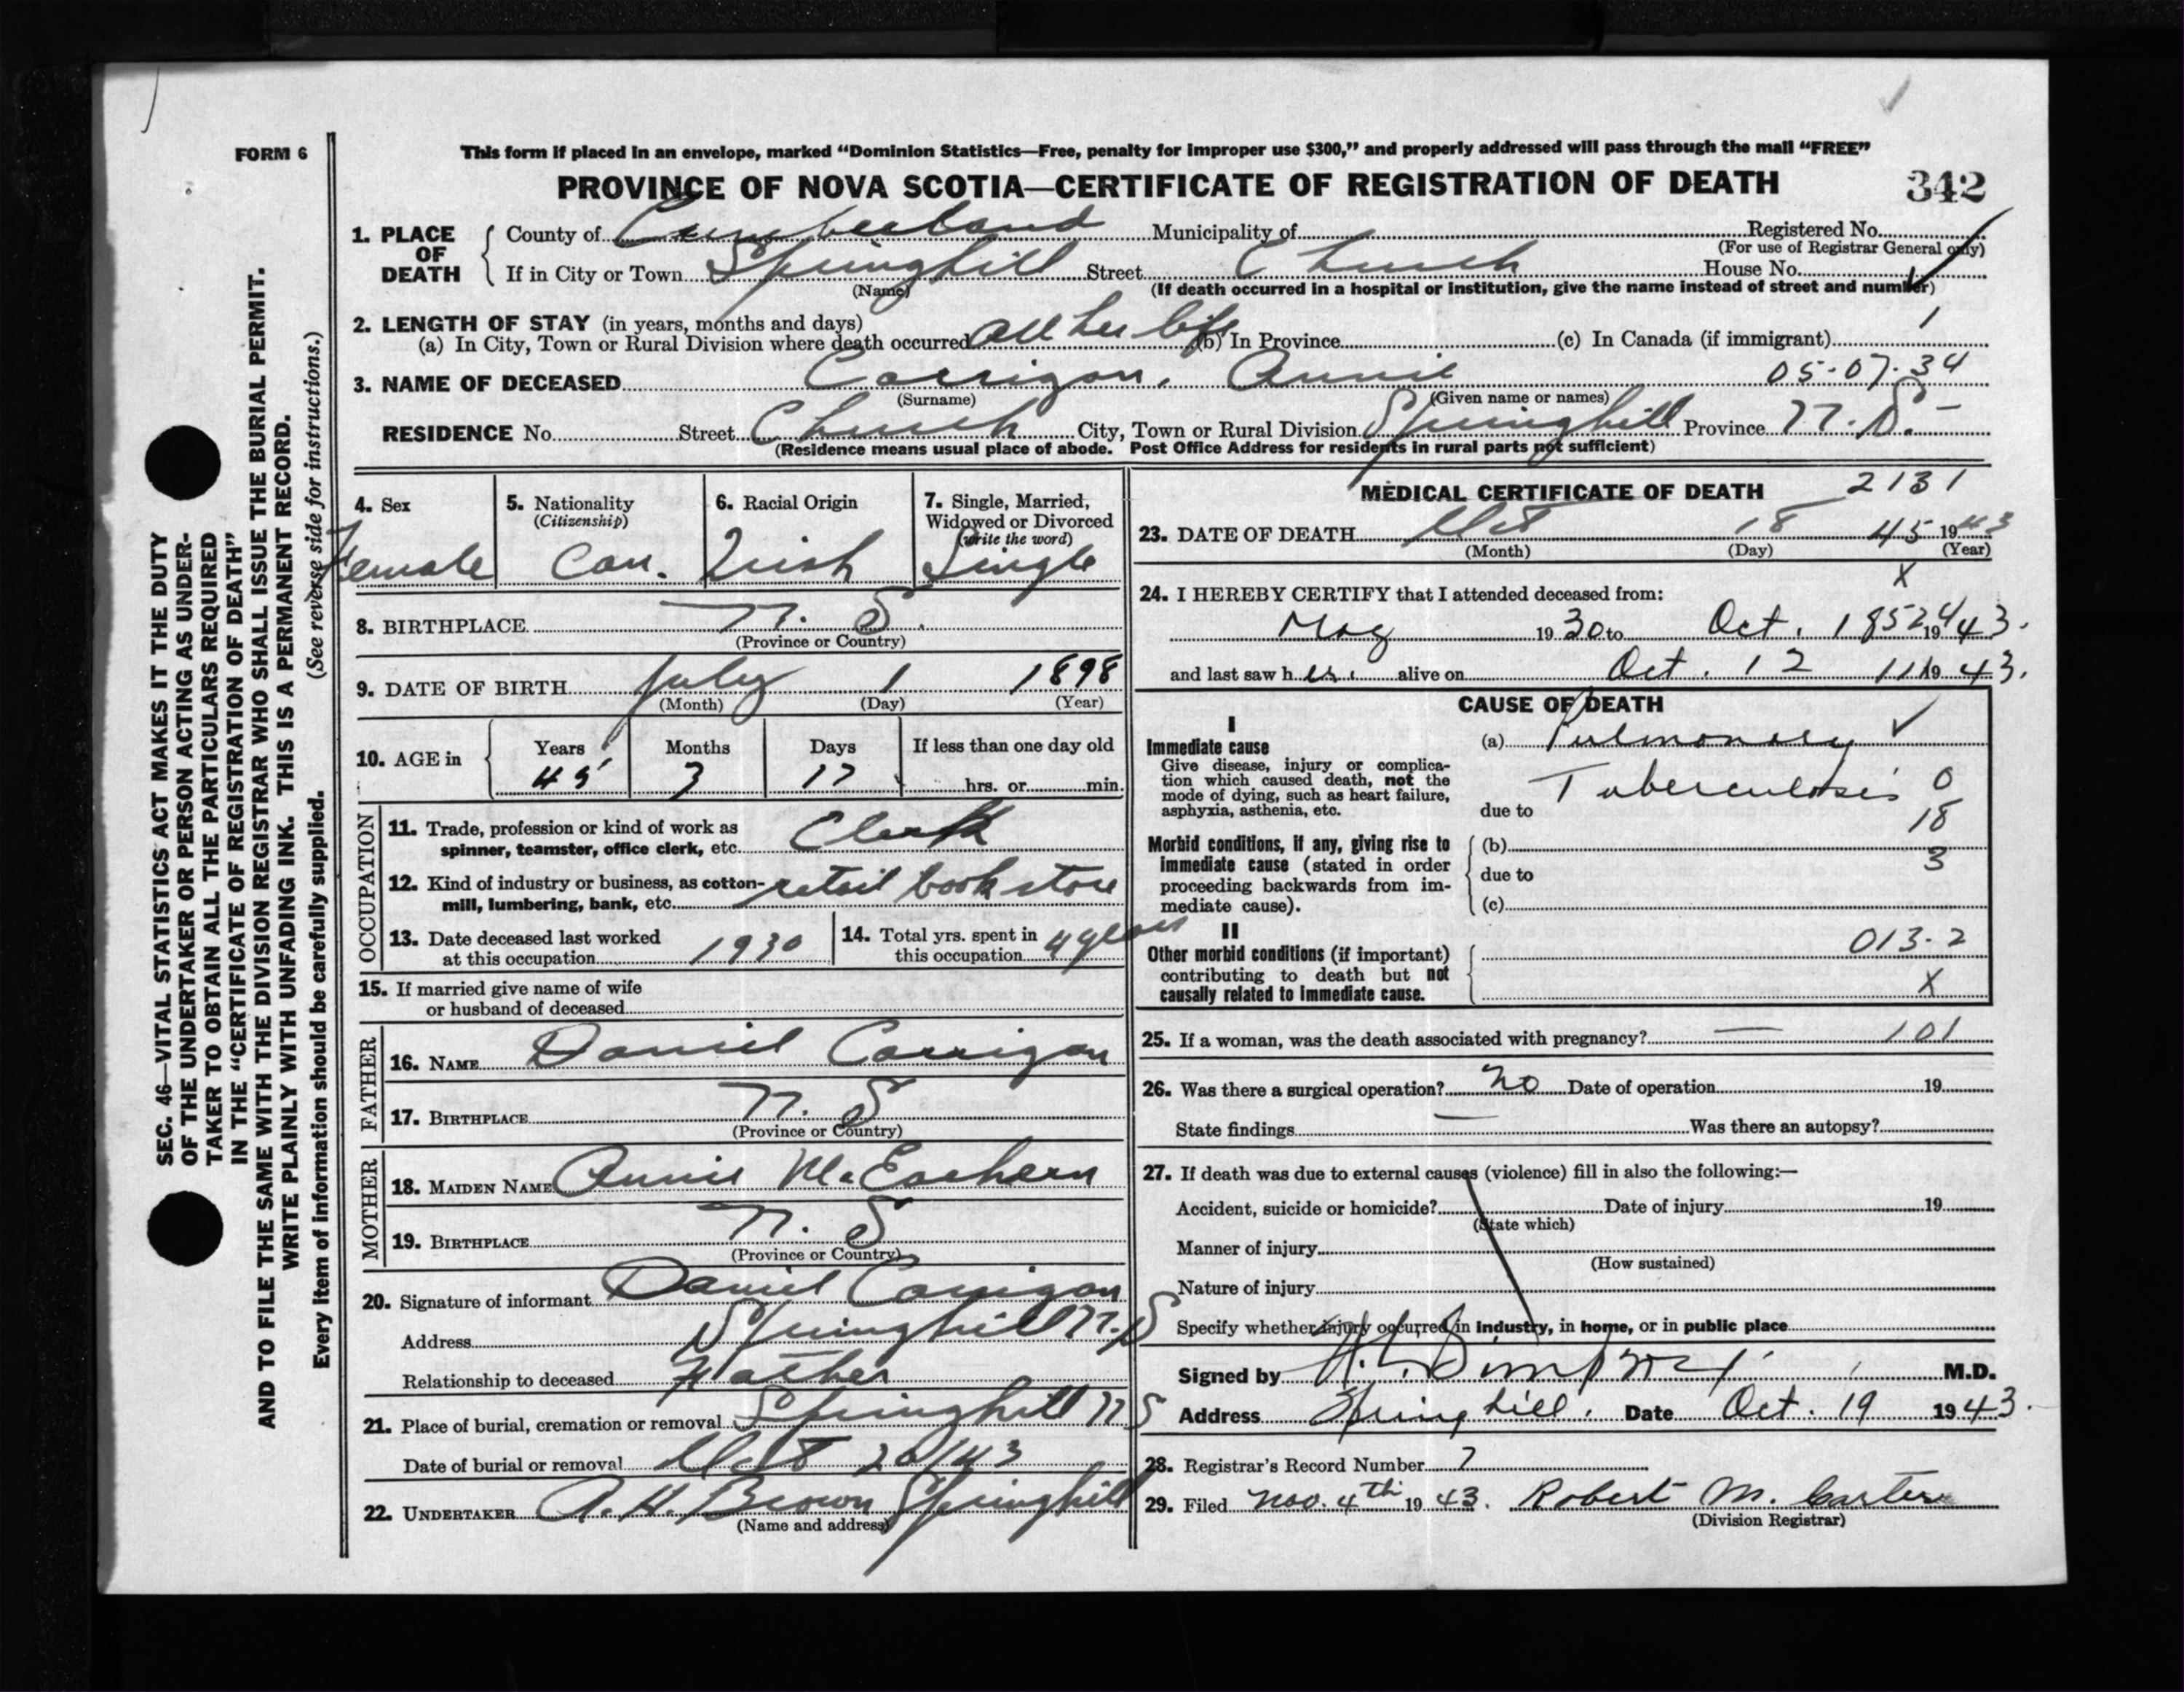 FORM 6
This form if placed in an envelope, marked “Dominion Statistics—Free, penalty for improper use $300,” and properly addressed will pass through the mail “FREE”
PROVINCE OF NOVA SCOTIA—CERTIFICATE OF REGISTRATION OF DEATH 342
1. PLACE OF DEATH
County of Cumberland Municipality of Registered No.
(For use of Registrar General only)
If in City or Town Springhill Street Church House No.
(Name) (If death occurred in a hospital or institution, give the name instead of street and number)
2. LENGTH OF STAY (in years, months and days) 1
(a) In City, Town or Rural Division where death occurred all her life (b) In Province (c) In Canada (if immigrant)
3. NAME OF DECEASED Corrigan, Annie 05-07-34
(Surname) (Given name or names)
RESIDENCE No. Street Church City, Town or Rural Division Springhill Province N.S.
(Residence means usual place of abode. Post Office Address for residents in rural parts not sufficient)
4. Sex
Female
5. Nationality
(Citizenship)
Can.
6. Racial Origin
Irish
7. Single, Married,
Widowed or Divorced
(write the word)
Single
8. BIRTHPLACE N. S.
(Province or Country)
9. DATE OF BIRTH July 1 1898
(Month) (Day) (Year)
10. AGE in
Years Months Days If less than one day old
45 3 17 hrs. or min.
OCCUPATION
11. Trade, profession or kind of work as
spinner, teamster, office clerk, etc. Clerk
12. Kind of industry or business, as cotton-
mill, lumbering, bank, etc. retail book store
13. Date deceased last worked
at this occupation 1930
14. Total yrs. spent in
this occupation 4 years
15. If married give name of wife
or husband of deceased
FATHER
16. NAME Daniel Corrigan
17. BIRTHPLACE N. S
(Province or Country)
MOTHER
18. MAIDEN NAME Annie McEachern
19. BIRTHPLACE N. S
(Province or Country)
20. Signature of informant Daniel Corrigan
Address Springhill N.S
Relationship to deceased Father
21. Place of burial, cremation or removal Springhill N S
Date of burial or removal Oct 20/43
22. UNDERTAKER A. H. Brown Springhill
(Name and address)
MEDICAL CERTIFICATE OF DEATH 2131
23. DATE OF DEATH Oct 18 45 1943
(Month) (Day) (Year)
x
24. I HEREBY CERTIFY that I attended deceased from:
May 1930 to Oct. 18 524 1943.
and last saw her alive on Oct. 12 111 1943.
CAUSE OF DEATH
I
Immediate cause
Give disease, injury or complica-
tion which caused death, not the
mode of dying, such as heart failure,
asphyxia, asthenia, etc.
(a) Pulmonary
Tuberculosis 0
due to 18
Morbid conditions, if any, giving rise to
immediate cause (stated in order
proceeding backwards from im-
mediate cause).
(b) 3
due to
(c)
II
Other morbid conditions (if important)
contributing to death but not
causally related to immediate cause.
013-2
X
25. If a woman, was the death associated with pregnancy? — 101
26. Was there a surgical operation? No Date of operation 19
State findings — Was there an autopsy?
27. If death was due to external causes (violence) fill in also the following:—
Accident, suicide or homicide? Date of injury 19
(State which)
Manner of injury
(How sustained)
Nature of injury
Specify whether injury occurred in industry, in home, or in public place
Signed by M.D.
Address Springhill. Date Oct. 19 1943.
28. Registrar's Record Number 7
29. Filed Nov. 4th 1943. Robert M. Carter
(Division Registrar)
SEC. 46—VITAL STATISTICS ACT MAKES IT THE DUTY
OF THE UNDERTAKER OR PERSON ACTING AS UNDER-
TAKER TO OBTAIN ALL THE PARTICULARS REQUIRED
IN THE “CERTIFICATE OF REGISTRATION OF DEATH”
AND TO FILE THE SAME WITH THE DIVISION REGISTRAR WHO SHALL ISSUE THE BURIAL PERMIT.
WRITE PLAINLY WITH UNFADING INK. THIS IS A PERMANENT RECORD.
Every item of information should be carefully supplied. (See reverse side for instructions.)